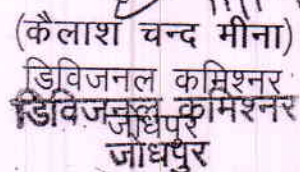 (कैलाश चन्द मीना)
डिविजनल कमिश्नर
डिविजनल कमिश्नर
जोधपुर
जोधपुर